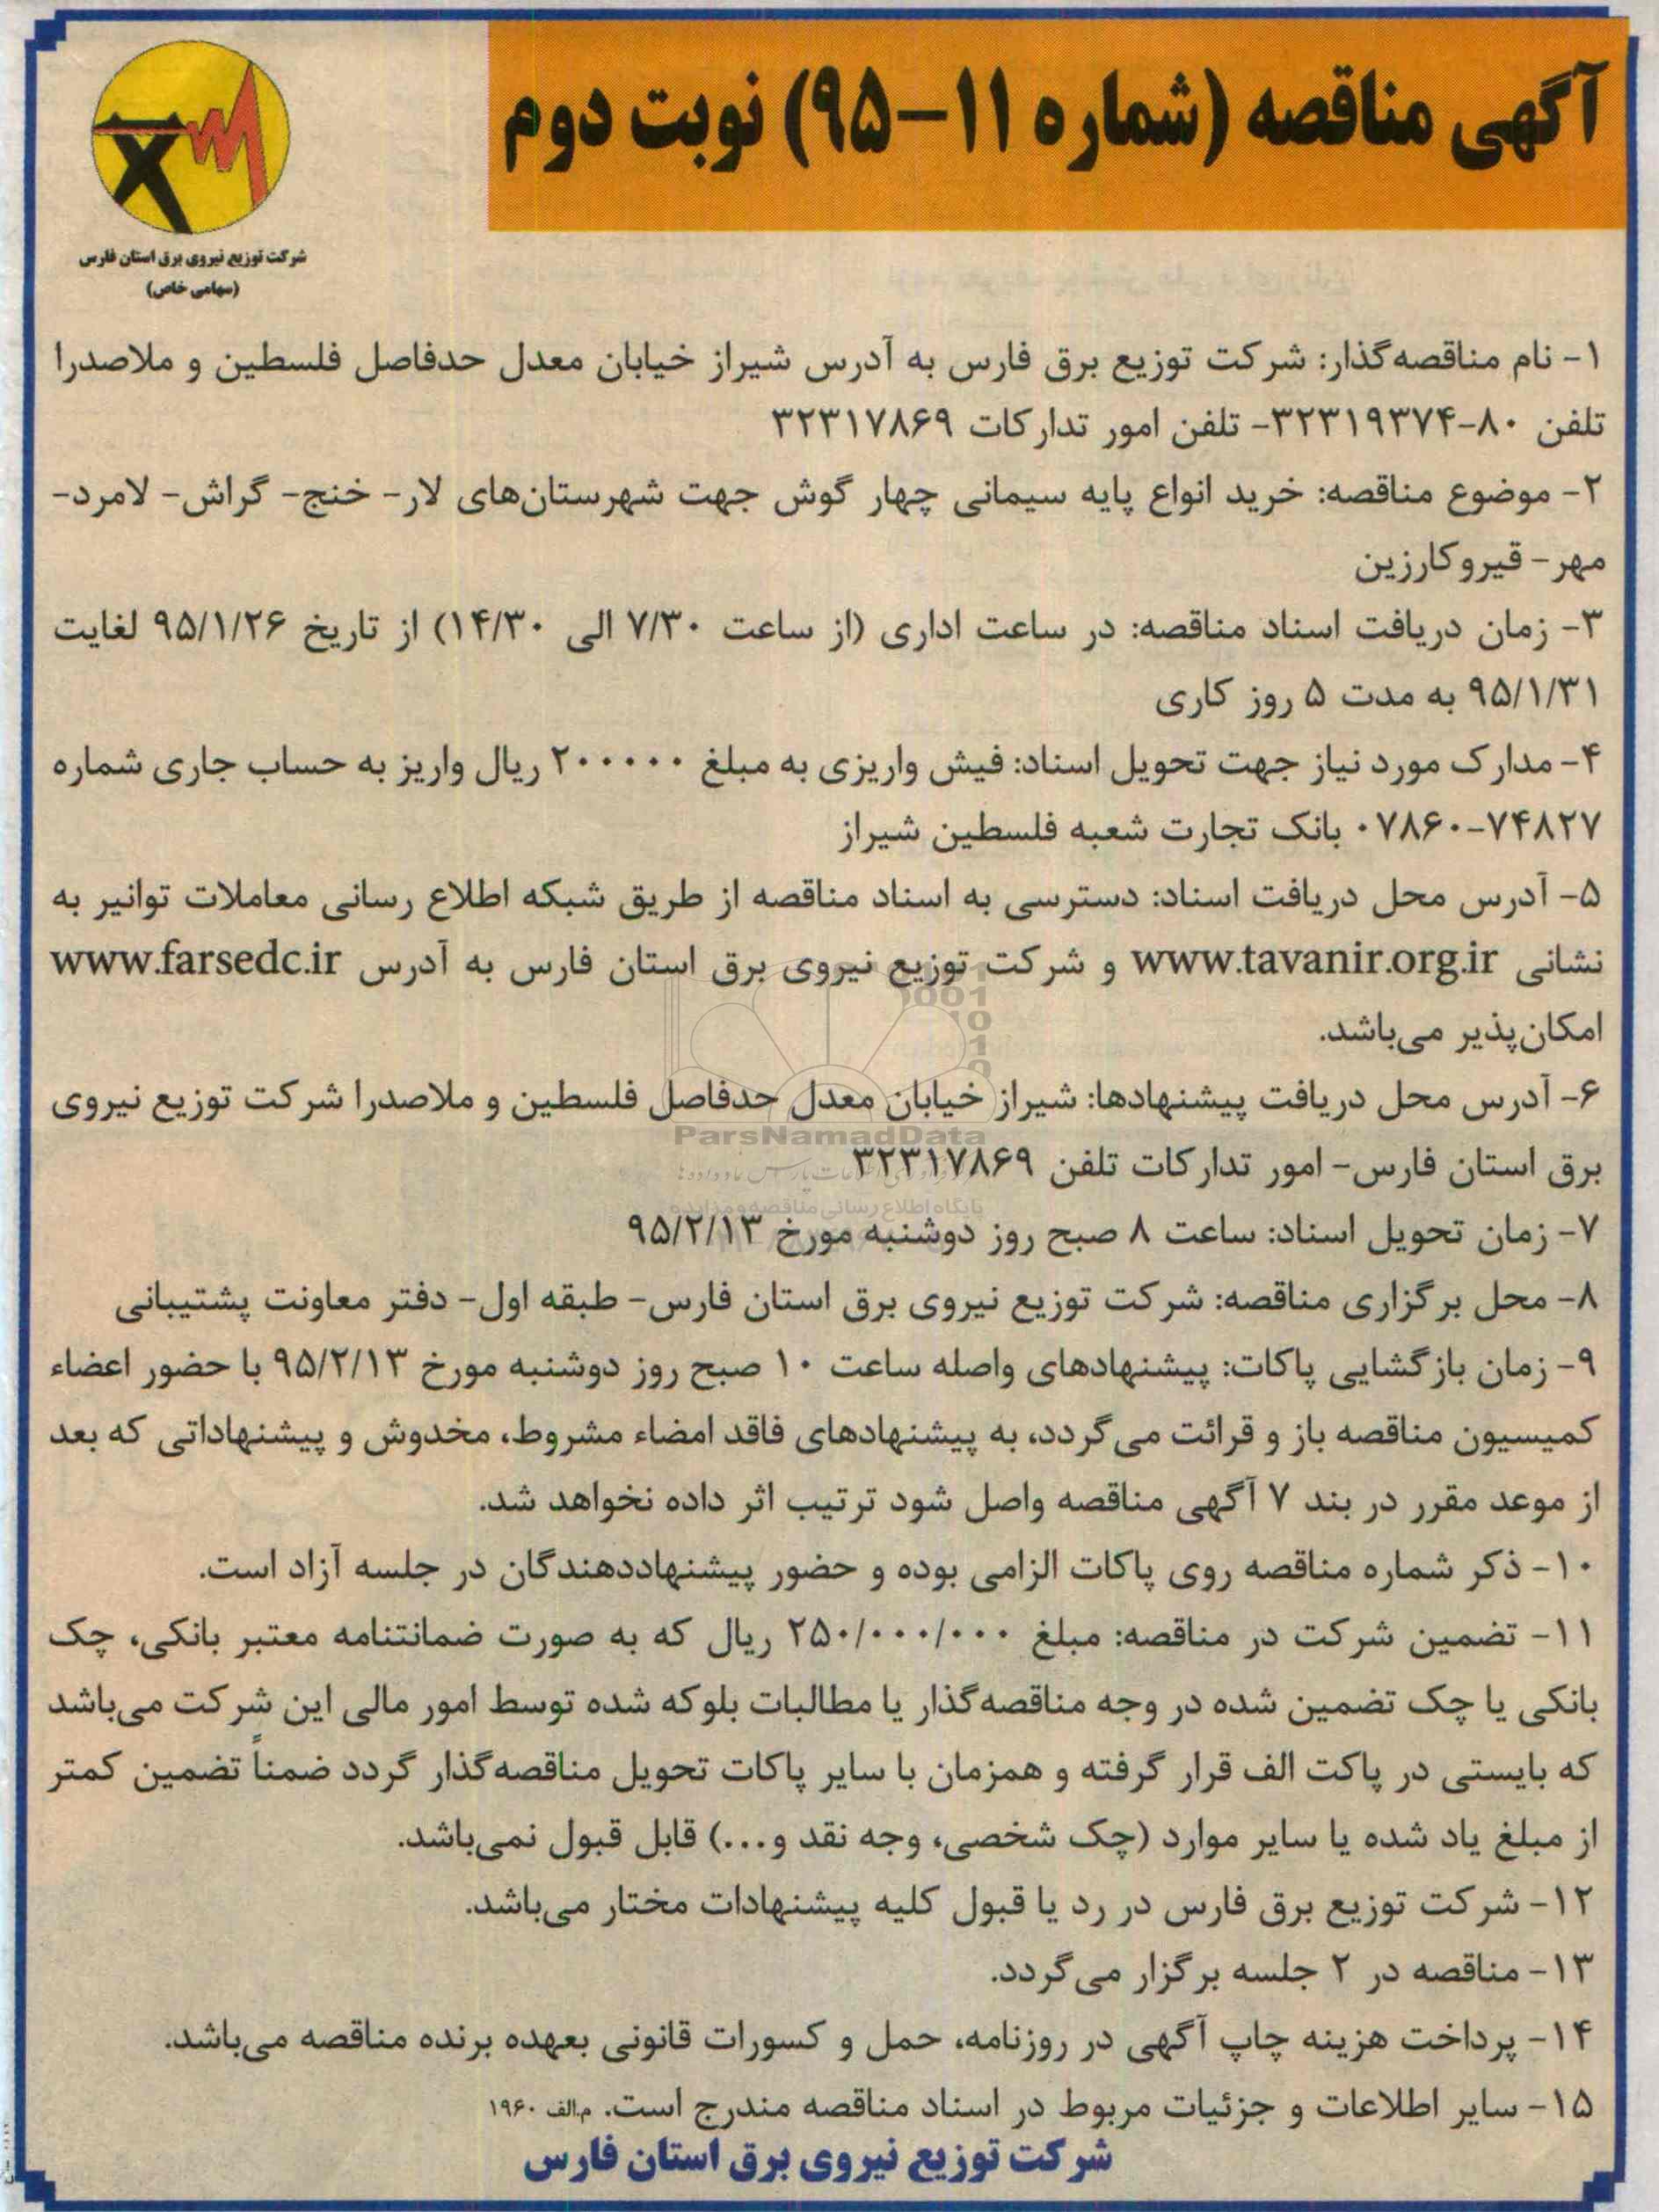 آگهی مناقصه (شماره ۱۱-۹۵) نوبت دوم
شرکت توزیع نیروی برق استان فارس
(سهامی خاص)
۱- نام مناقصه‌گذار: شرکت توزیع برق فارس به آدرس شیراز خیابان معدل حدفاصل فلسطین و ملاصدرا
تلفن ۸۰-۳۲۳۱۹۳۷۴- تلفن امور تدارکات ۳۲۳۱۷۸۶۹
۲- موضوع مناقصه: خرید انواع پایه سیمانی چهار گوش جهت شهرستان‌های لار- خنج- گراش- لامرد-
مهر- قیروکارزین
۳- زمان دریافت اسناد مناقصه: در ساعت اداری (از ساعت ۷/۳۰ الی ۱۴/۳۰) از تاریخ ۹۵/۱/۲۶ لغایت
۹۵/۱/۳۱ به مدت ۵ روز کاری
۴- مدارک مورد نیاز جهت تحویل اسناد: فیش واریزی به مبلغ ۲۰۰۰۰۰ ریال واریز به حساب جاری شماره
۰۷۸۶۰-۷۴۸۲۷ بانک تجارت شعبه فلسطین شیراز
۵- آدرس محل دریافت اسناد: دسترسی به اسناد مناقصه از طریق شبکه اطلاع رسانی معاملات توانیر به
نشانی www.tavanir.org.ir و شرکت توزیع نیروی برق استان فارس به آدرس www.farsedc.ir
امکان‌پذیر می‌باشد.
۶- آدرس محل دریافت پیشنهادها: شیراز خیابان معدل حدفاصل فلسطین و ملاصدرا شرکت توزیع نیروی
ParsNamadData
برق استان فارس- امور تدارکات تلفن ۳۲۳۱۷۸۶۹
پایگاه اطلاع رسانی مناقصه و مزایده
۷- زمان تحویل اسناد: ساعت ۸ صبح روز دوشنبه مورخ ۹۵/۲/۱۳
۸- محل برگزاری مناقصه: شرکت توزیع نیروی برق استان فارس- طبقه اول- دفتر معاونت پشتیبانی
۹- زمان بازگشایی پاکات: پیشنهادهای واصله ساعت ۱۰ صبح روز دوشنبه مورخ ۹۵/۲/۱۳ با حضور اعضاء
کمیسیون مناقصه باز و قرائت می‌گردد، به پیشنهادهای فاقد امضاء مشروط، مخدوش و پیشنهاداتی که بعد
از موعد مقرر در بند ۷ آگهی مناقصه واصل شود ترتیب اثر داده نخواهد شد.
۱۰- ذکر شماره مناقصه روی پاکات الزامی بوده و حضور پیشنهاددهندگان در جلسه آزاد است.
۱۱- تضمین شرکت در مناقصه: مبلغ ۲۵۰/۰۰۰/۰۰۰ ریال که به صورت ضمانتنامه معتبر بانکی، چک
بانکی یا چک تضمین شده در وجه مناقصه‌گذار یا مطالبات بلوکه شده توسط امور مالی این شرکت می‌باشد
که بایستی در پاکت الف قرار گرفته و همزمان با سایر پاکات تحویل مناقصه‌گذار گردد ضمناً تضمین کمتر
از مبلغ یاد شده یا سایر موارد (چک شخصی، وجه نقد و...) قابل قبول نمی‌باشد.
۱۲- شرکت توزیع برق فارس در رد یا قبول کلیه پیشنهادات مختار می‌باشد.
۱۳- مناقصه در ۲ جلسه برگزار می‌گردد.
۱۴- پرداخت هزینه چاپ آگهی در روزنامه، حمل و کسورات قانونی بعهده برنده مناقصه می‌باشد.
۱۵- سایر اطلاعات و جزئیات مربوط در اسناد مناقصه مندرج است. م.الف ۱۹۶۰
شرکت توزیع نیروی برق استان فارس